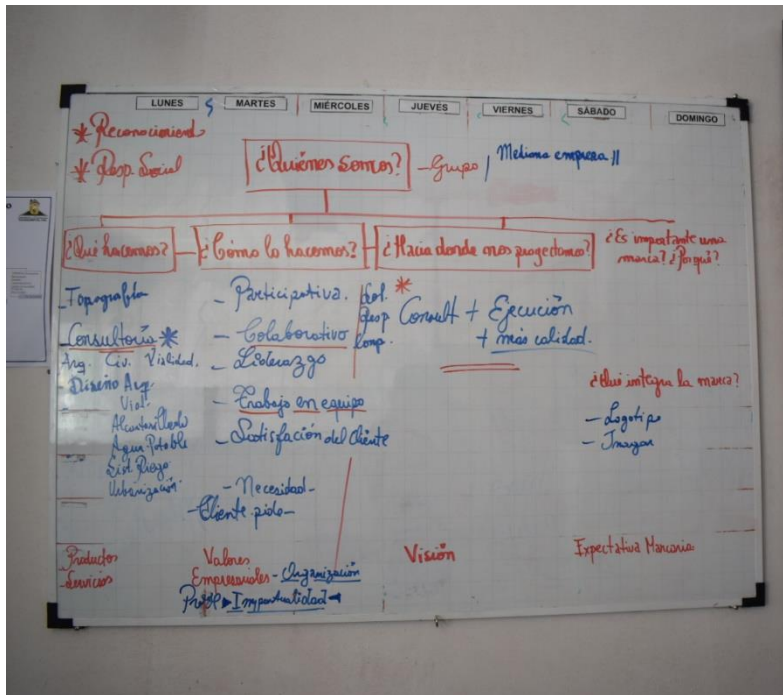 LUNES MARTES MIÉRCOLES JUEVES VIERNES SÁBADO DOMINGO
* Reconocimiento
* Resp. Social
¿Quiénes somos? - Grupo / Mediana empresa //
¿Qué hacemos?
¿Cómo lo hacemos?
¿Hacia donde nos proyectamos?
¿Es importante una
marca? ¿Porqué?
- Topografía
- Consultoría *
Arq. Civ. Vialidad.
- Diseño Arq.
Vial.
Alcantarillado
Agua Potable
Sist. Riego
Urbanización.
- Participativa.
- Colaborativo
- Liderazgo
- Trabajo en equipo
- Satisfacción del Cliente
- Necesidad -
- Cliente pide -
Resp
*
Consult + Ejecución
+ más calidad.
¿Qué integra la marca?
- Logotipo
- Imagen
- Productos
- Servicios
Valores
Empresariales - Organización
Impuntualidad
Visión
Expectativa Marcaria